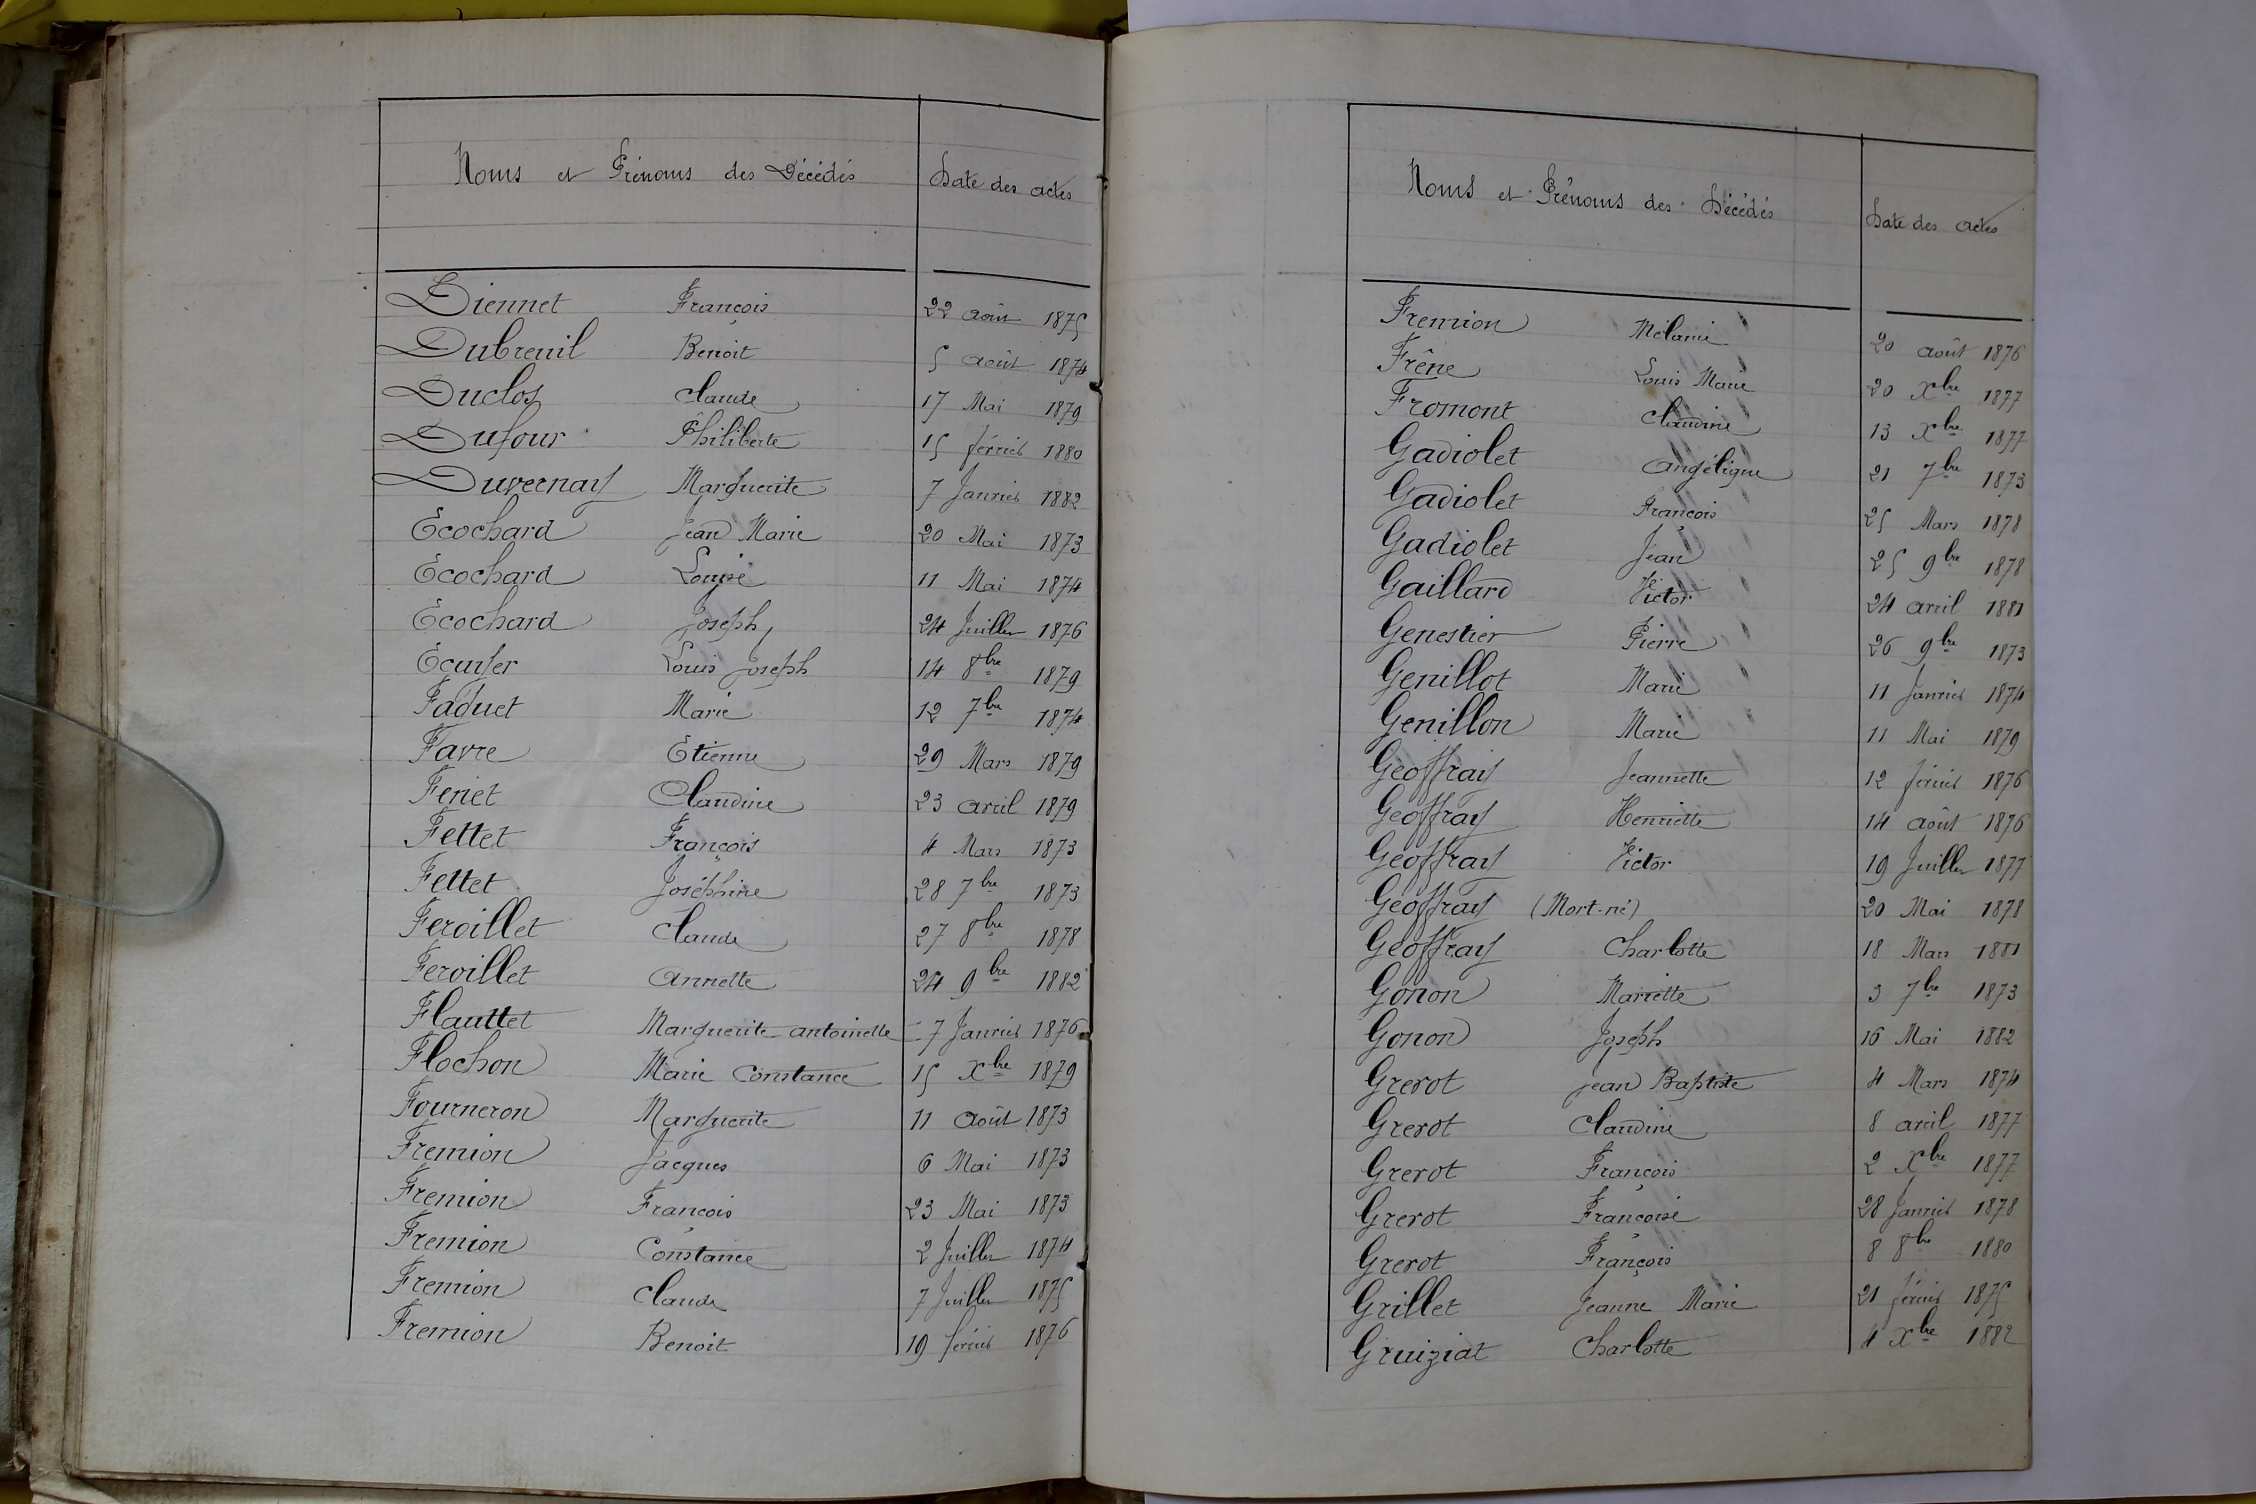 Noms et Prénoms des Décédés Date des actes
Diennet François 22 août 1875
Dubreuil Benoit 5 août 1874
Duclos Claude 17 Mai 1879
Dufour Philiberte 15 février 1880
Duvernay Marguerite 7 Janvier 1882
Ecochard Jean Marie 20 Mai 1873
Ecochard Louise 11 Mai 1874
Ecochard Joseph 24 Juillet 1876
Ecuyer Louis Joseph 14 8bre 1879
Faduet Marie 12 7bre 1874
Favre Etienne 29 Mars 1879
Feriet Claudine 23 avril 1879
Fettet François 4 Mars 1873
Fettet Joséphine 28 7bre 1873
Feroillet Claude 27 8bre 1878
Feroillet annette 24 9bre 1882
Flauttet Marguerite antoinette 7 Janvier 1876
Flochon Marie Constance 15 Xbre 1879
Fourneron Marguerite 11 Août 1873
Fremion Jacques 6 Mai 1873
Fremion François 23 Mai 1873
Fremion Constance 2 Juillet 1874
Fremion Claude 7 Juillet 1875
Fremion Benoit 19 février 1876
Noms et Prénoms des Décédés Date des actes
Fremion Mélanie 20 août 1876
Frêne Louis Marie 20 Xbre 1877
Fromont Claudine 13 Xbre 1877
Gadiolet Angélique 21 7bre 1873
Gadiolet François 25 Mars 1878
Gadiolet Jean 25 9bre 1878
Gaillard Victor 24 avril 1881
Genestier Pierre 26 9bre 1873
Genillot Marie 11 Janvier 1874
Genillon Marie 11 Mai 1879
Geoffray Jeannette 12 février 1876
Geoffray Henriette 14 août 1876
Geoffray Victor 19 Juillet 1877
Geoffray (Mort-né) 20 Mai 1878
Geoffray Charlotte 18 Mars 1881
Gonon Mariette 3 7bre 1873
Gonon Joseph 16 Mai 1882
Grerot Jean Baptiste 4 Mars 1874
Grerot Claudine 8 avril 1877
Grerot François 2 Xbre 1877
Grerot Françoise 28 Janvier 1878
Grerot François 8 8bre 1880
Grillet Jeanne Marie 21 février 1875
Gruiziat Charlotte 4 Xbre 1882